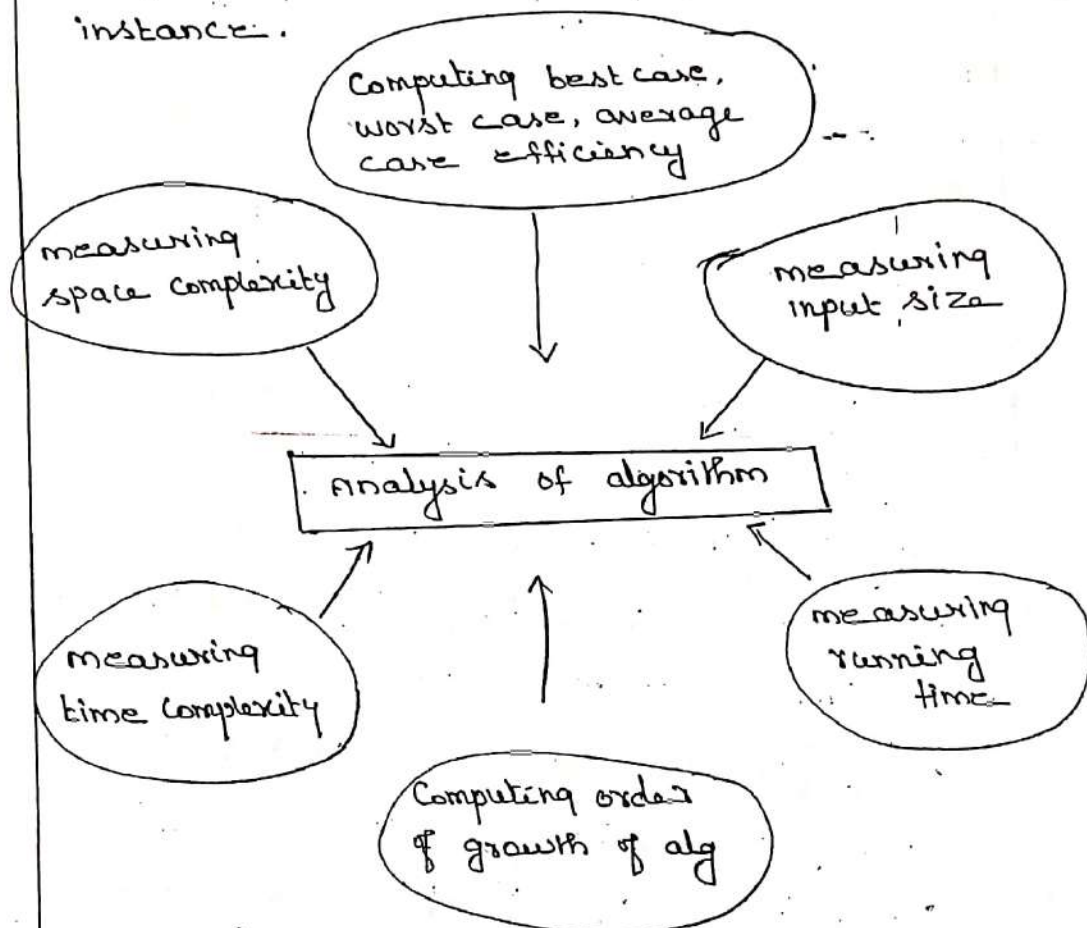 instance.
Computing best case,
worst case, average
case efficiency
measuring
space complexity
measuring
input size
Analysis of algorithm
measuring
time complexity
measuring
running
time
Computing order
of growth of alg